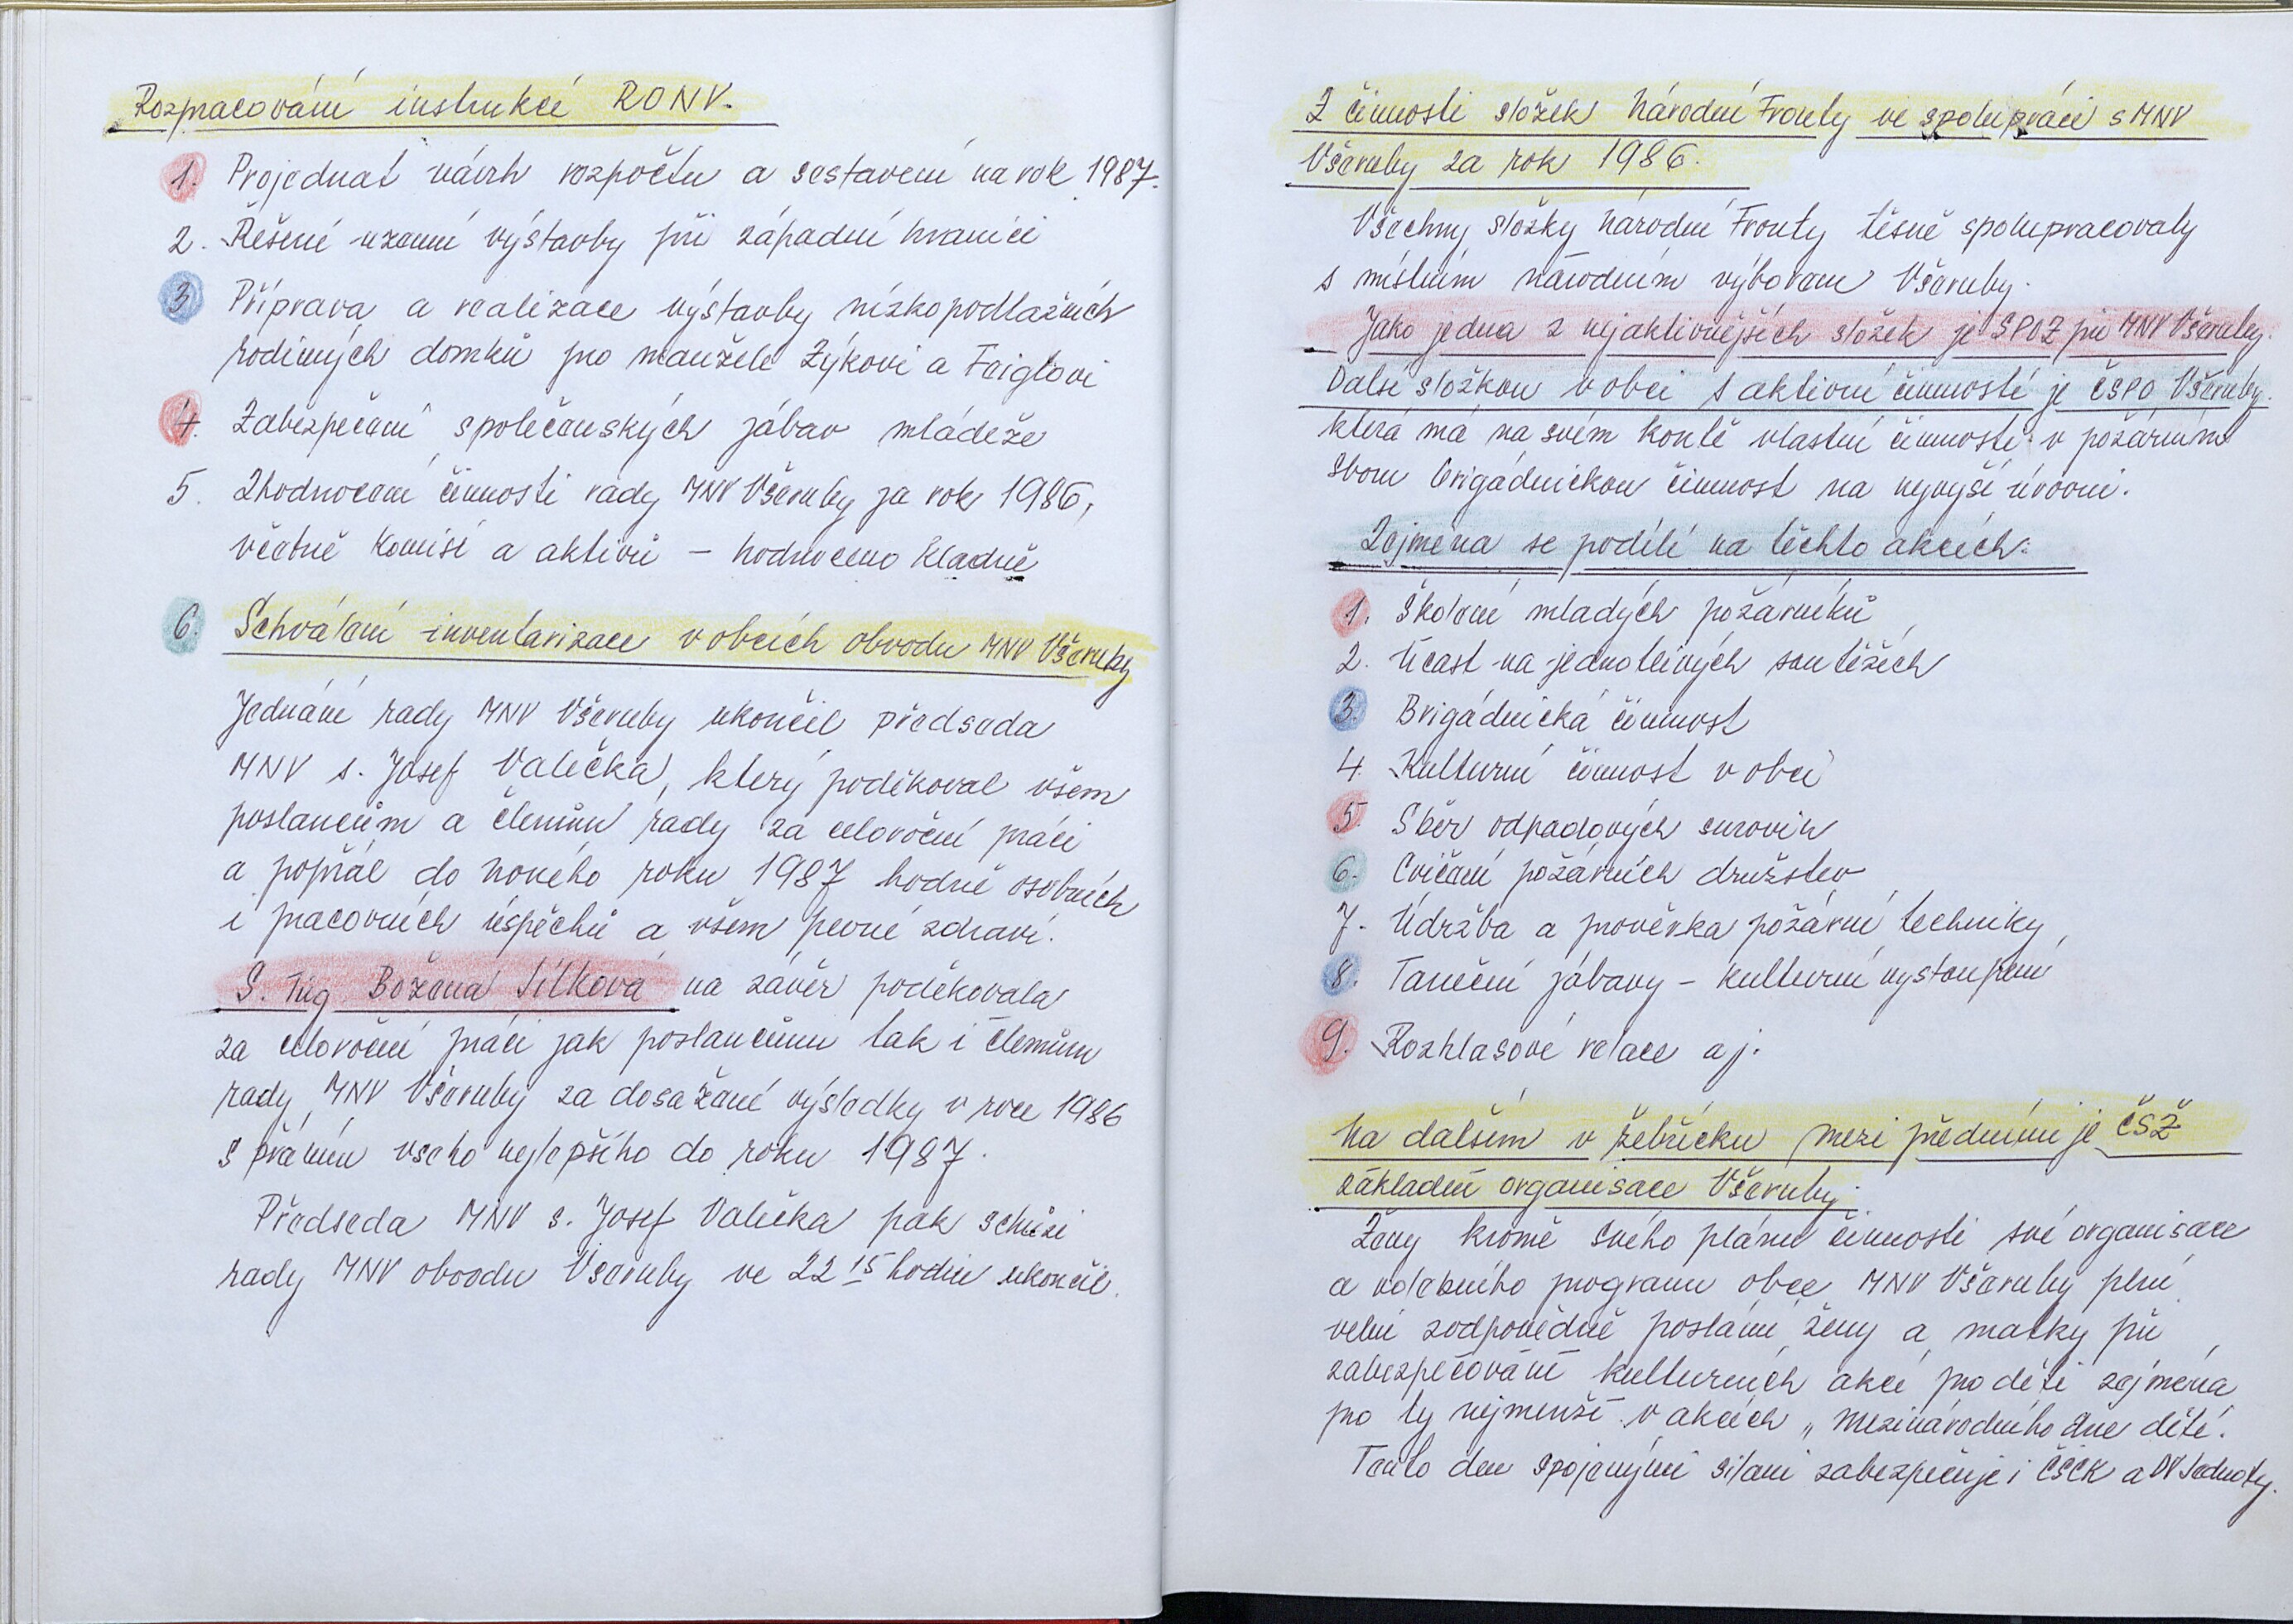 Rozpracování instrukcí RONV.
1. Projednat návrh rozpočtu a sestavení na rok 1987.
2. Řešení územní výstavby při západní hranici
3. Příprava a realizace výstavby nízkopodlažních
rodinných domků pro manžele Zýkovi a Faiglovi
4. Zabezpečení společenských zábav mládeže
5. Zhodnocení činnosti rady MNV Všeruby za rok 1986,
včetně komisí a aktivů – hodnoceno kladně
6. Schválení inventarizace v obcích obvodu MNV Všeruby
Jednání rady MNV Všeruby ukončil předseda
MNV s. Josef Valečka, který poděkoval všem
poslancům a členům rady za celoroční práci
a popřál do nového roku 1987 hodně osobních
i pracovních úspěchů a všem pevné zdraví.
S. Ing. Božena Sítková na závěr poděkovala
za celoroční práci jak poslancům tak i členům
rady MNV Všeruby za dosažené výsledky v roce 1986
s přáním všeho nejlepšího do roku 1987.
Předseda MNV s. Josef Valečka pak schůzi
rady MNV obvodu Všeruby ve 22 15 hodin ukončil.
Z činnosti složek Národní Fronty ve spolupráci s MNV
Všeruby za rok 1986.
Všechny složky Národní Fronty těsně spolupracovaly
s místním národním výborem Všeruby.
Jako jedna z nejaktivnějších složek je SPOZ při MNV Všeruby.
Další složkou v obci s aktivní činností je ČSPO Všeruby.
která má na svém kontě vlastní činnosti v požárním
sboru brigádnickou činnost na nejvyší úrovni.
Zejména se podílí na těchto akcích:
1. Školení mladých požárníků
2. Účast na jednotlivých soutěžích
3. Brigádnická činnost
4. Kulturní činnost v obci
5. Sběr odpadových surovin
6. Cvičení požárních družstev
7. Údržba a prověrka požární techniky
8. Taneční zábavy – kulturní vystoupení
9. Rozhlasové relace aj.
Na dalším v žebříčku mezi předními je ČSŽ
základní organisace Všeruby.
Ženy kromě svého plánu činnosti své organisace
a volebního programu obce MNV Všeruby plní
velmi zodpovědně poslání ženy a matky při
zabezpečování kulturních akcí pro děti zejména
pro ty nejmenší v akcích „Mezinárodního dne dětí.
Tento den spojenými silami zabezpečuje i ČSČK a DV Jednoty.